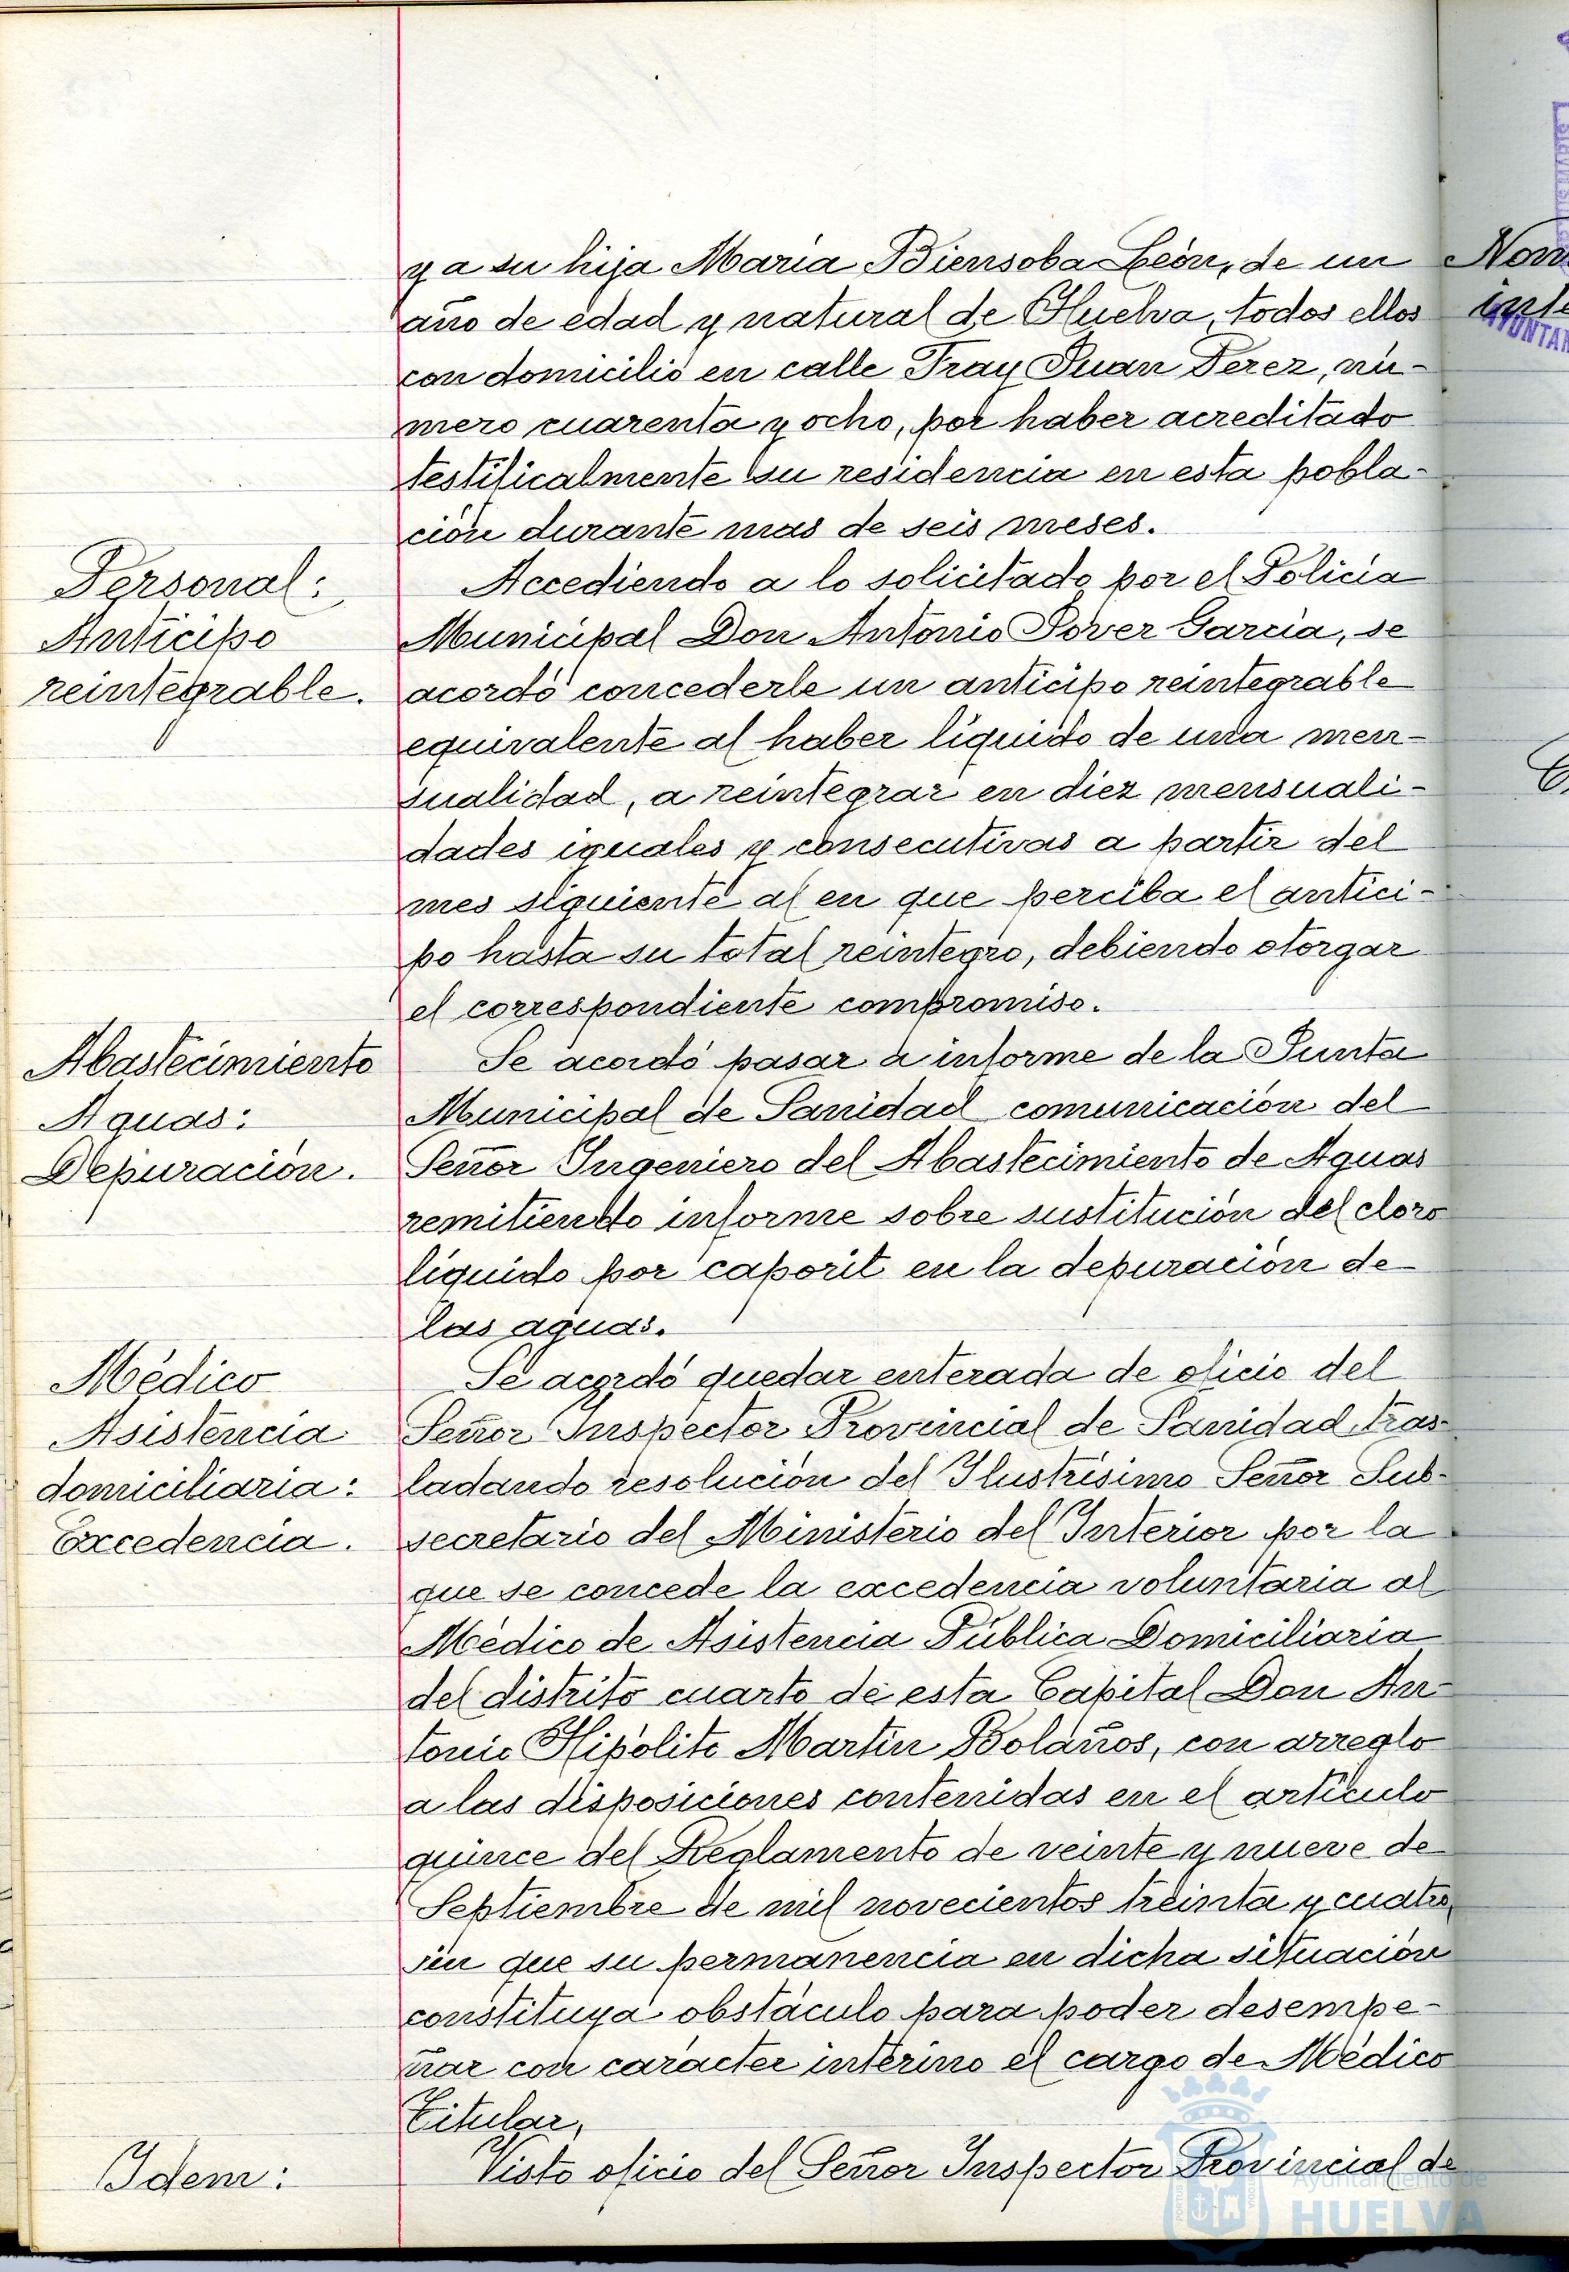 y a su hija María Biensoba León, de un
año de edad y natural de Huelva, todos ellos
con domicilio en calle Fray Juan Perez, nú-
mero cuarenta y ocho, por haber acreditado
testificalmente su residencia en esta pobla-
ción durante mas de seis meses.
Personal:
Anticipo
reintegrable.
Accediendo a lo solicitado por el Policía
Municipal Don Antonio Pover García, se
acordó concederle un anticipo reintegrable
equivalente al haber líquido de una men-
sualidad, a reintegrar en diez mensuali-
dades iguales y consecutivas a partir del
mes siguiente al en que perciba el antici-
po hasta su total reintegro, debiendo otorgar
el correspondiente compromiso.
Abastecimiento
Aguas:
Depuración.
Se acordó pasar a informe de la Junta
Municipal de Sanidad comunicación del
Señor Ingeniero del Abastecimiento de Aguas
remitiendo informe sobre sustitución del cloro
líquido por caporit en la depuración de
las aguas.
Médico
Asistencia
domiciliaria:
Excedencia.
Se acordó quedar enterada de oficio del
Señor Inspector Provincial de Sanidad, tras-
ladando resolución del Ilustrísimo Señor Sub-
secretario del Ministerio del Interior por la
que se concede la excedencia voluntaria al
Médico de Asistencia Pública Domiciliaria
del distrito cuarto de esta Capital Don An-
tonio Hipólito Martín Bolaños, con arreglo
a las disposiciones contenidas en el artículo
quince del Reglamento de veinte y nueve de
Septiembre de mil novecientos treinta y cuatro,
sin que su permanencia en dicha situación
constituya obstáculo para poder desempe-
ñar con carácter interino el cargo de Médico
Titular,
Idem:
Visto oficio del Señor Inspector Provincial de
Ayuntamiento de
HUELVA